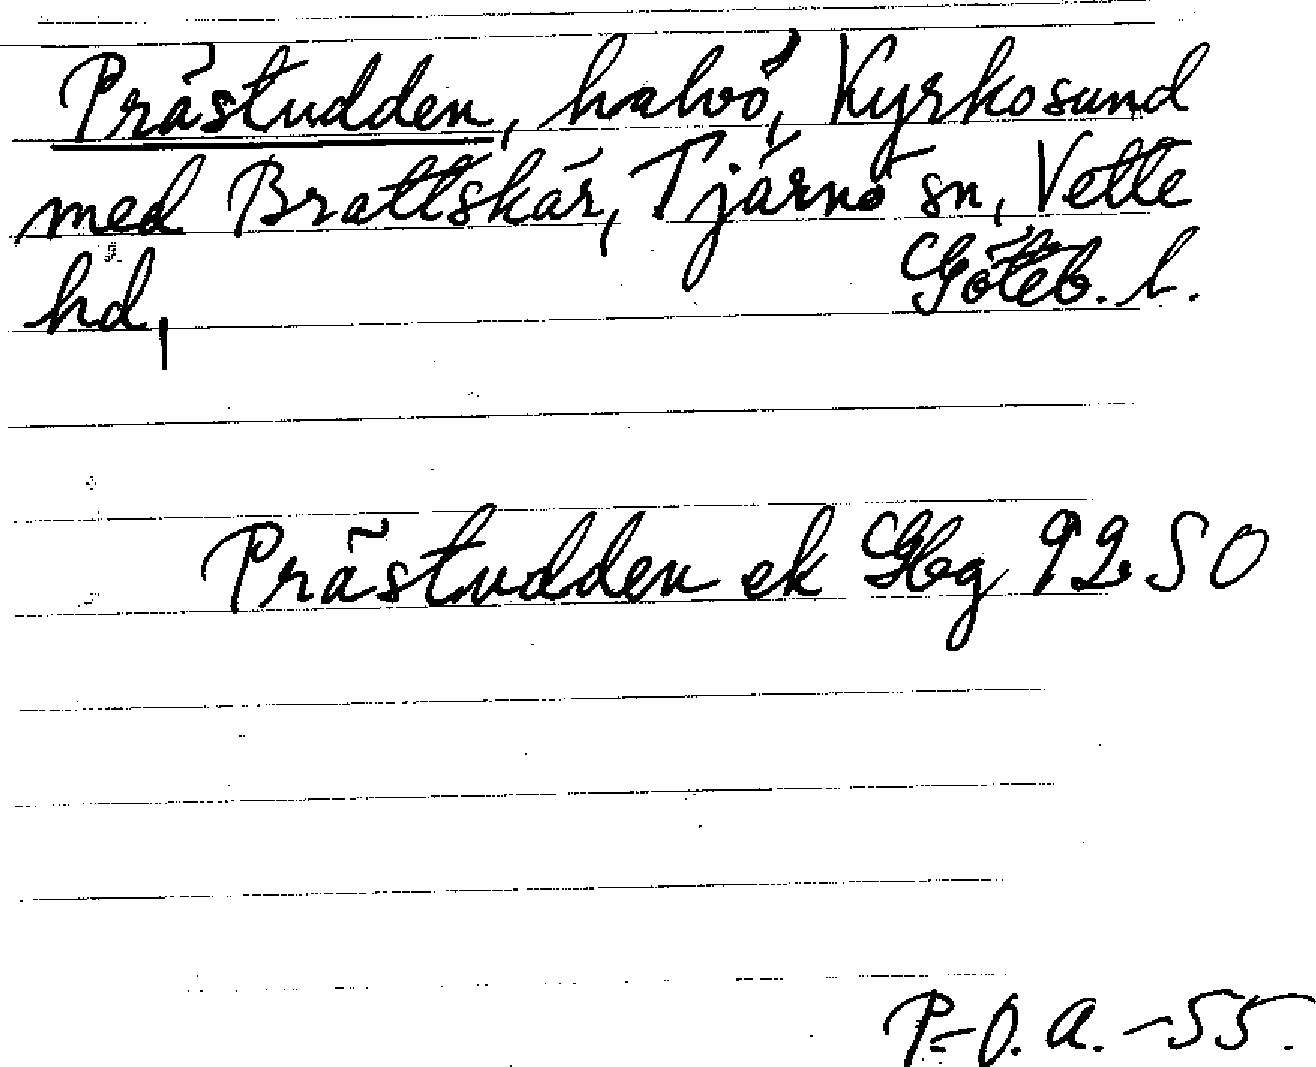 Prästudden, halvö, Kyrkosund
med Brattskär, Tjärnö sn, Vette
hd, Göteb. l.
Prästudden ek Gbg 92.50
P-O. A. -55.